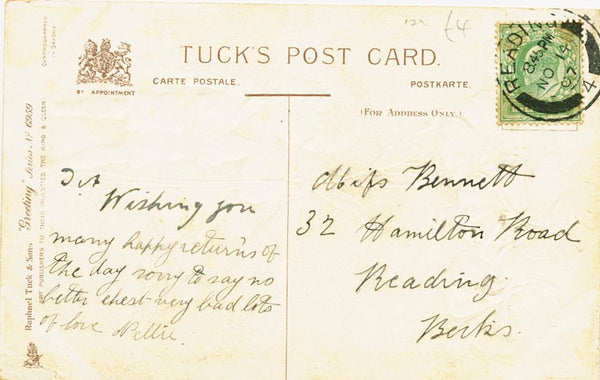 £4
TUCK'S POST CARD.
CARTE POSTALE.
POSTKARTE.
BY APPOINTMENT
(FOR ADDRESS ONLY.)
READING
8 45 PM
NO 14
07
4
CHROMOGRAPHED
IN SAXONY
Raphael Tuck & Sons' "Greeting" Series No
ART PUBLISHERS TO THEIR MAJESTIES THE KING & QUEEN
Wishing you
many happy returns of
the day sorry to say no
better chest very bad lots
of love Nellie
Miss Bennett
32 Hamilton Road
Reading.
Berks.